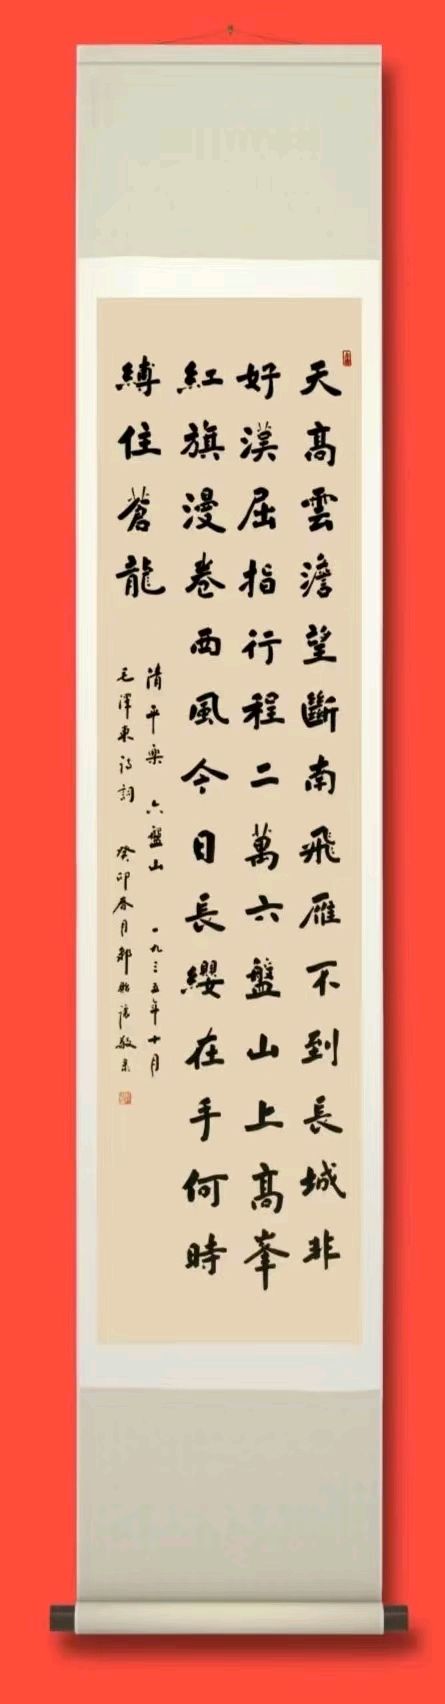 天高雲澹望斷南飛雁不到長城非
好漢屈指行程二萬六盤山上高峯
紅旗漫卷西風今日長纓在手何時
縛住蒼龍
清平樂 六盤山 一九三五年十月
毛澤東詩詞 癸卯春月鄭
敬录